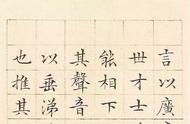 言以廣
世才士
能相下
其聲音
以垂涕
也推其